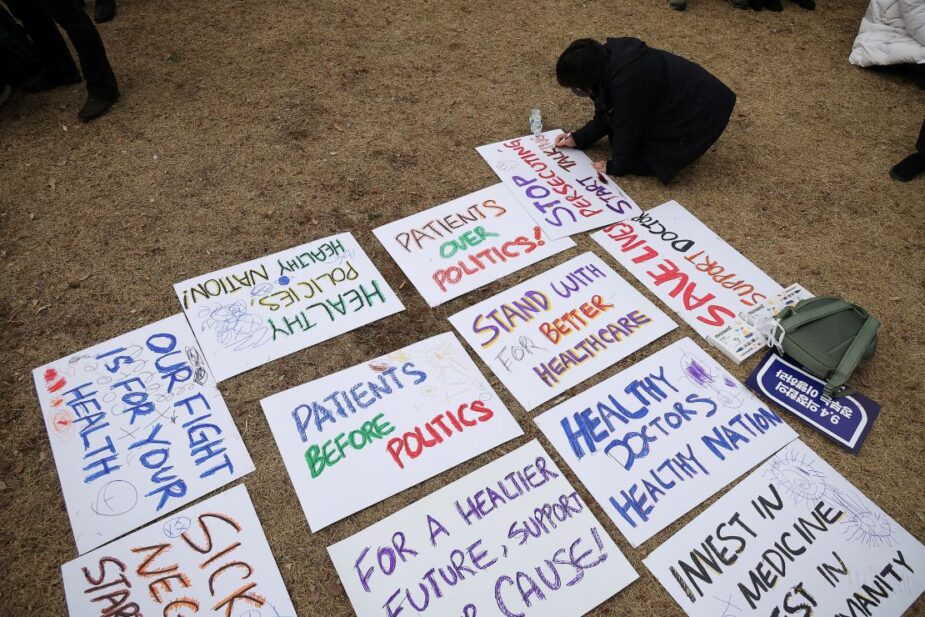 STOP
PERSECUTING
START TALKING
SAVE LIVES
SUPPORT DOCTOR
PATIENTS
OVER
POLITICS!
HEALTHY
POLICIES,
HEALTHY NATION!
STAND WITH
FOR BETTER
HEALTHCARE
OUR FIGHT
IS FOR YOUR
HEALTH
PATIENTS
BEFORE
POLITICS
HEALTHY
DOCTORS
HEALTHY NATION
SICK
NEG
STAR
FOR A HEALTHIER
FUTURE, SUPPORT
OUR CAUSE!
INVEST IN
MEDICINE
INVEST IN
HUMANITY
9.4 의정합의